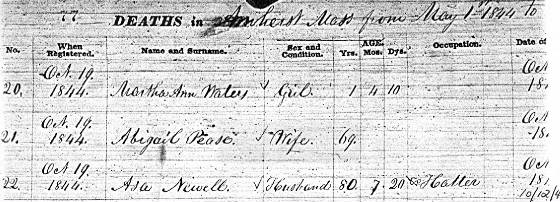 77 DEATHS in Amherst Mass from May 1st 1844 to
No. When Registered. Name and Surname. Sex and Condition. AGE. Yrs. Mos. Dys. Occupation. Date of
20. Oct. 19. 1844. Martha Ann Waters Girl. 1 4 10 Oct 184
21. Oct. 19. 1844. Abigail Pease. Wife. 69. Oct 184
22. Oct 19 1844. Asa Newell. Husband 80 7 20 Hatter Oct 181 10/12/4